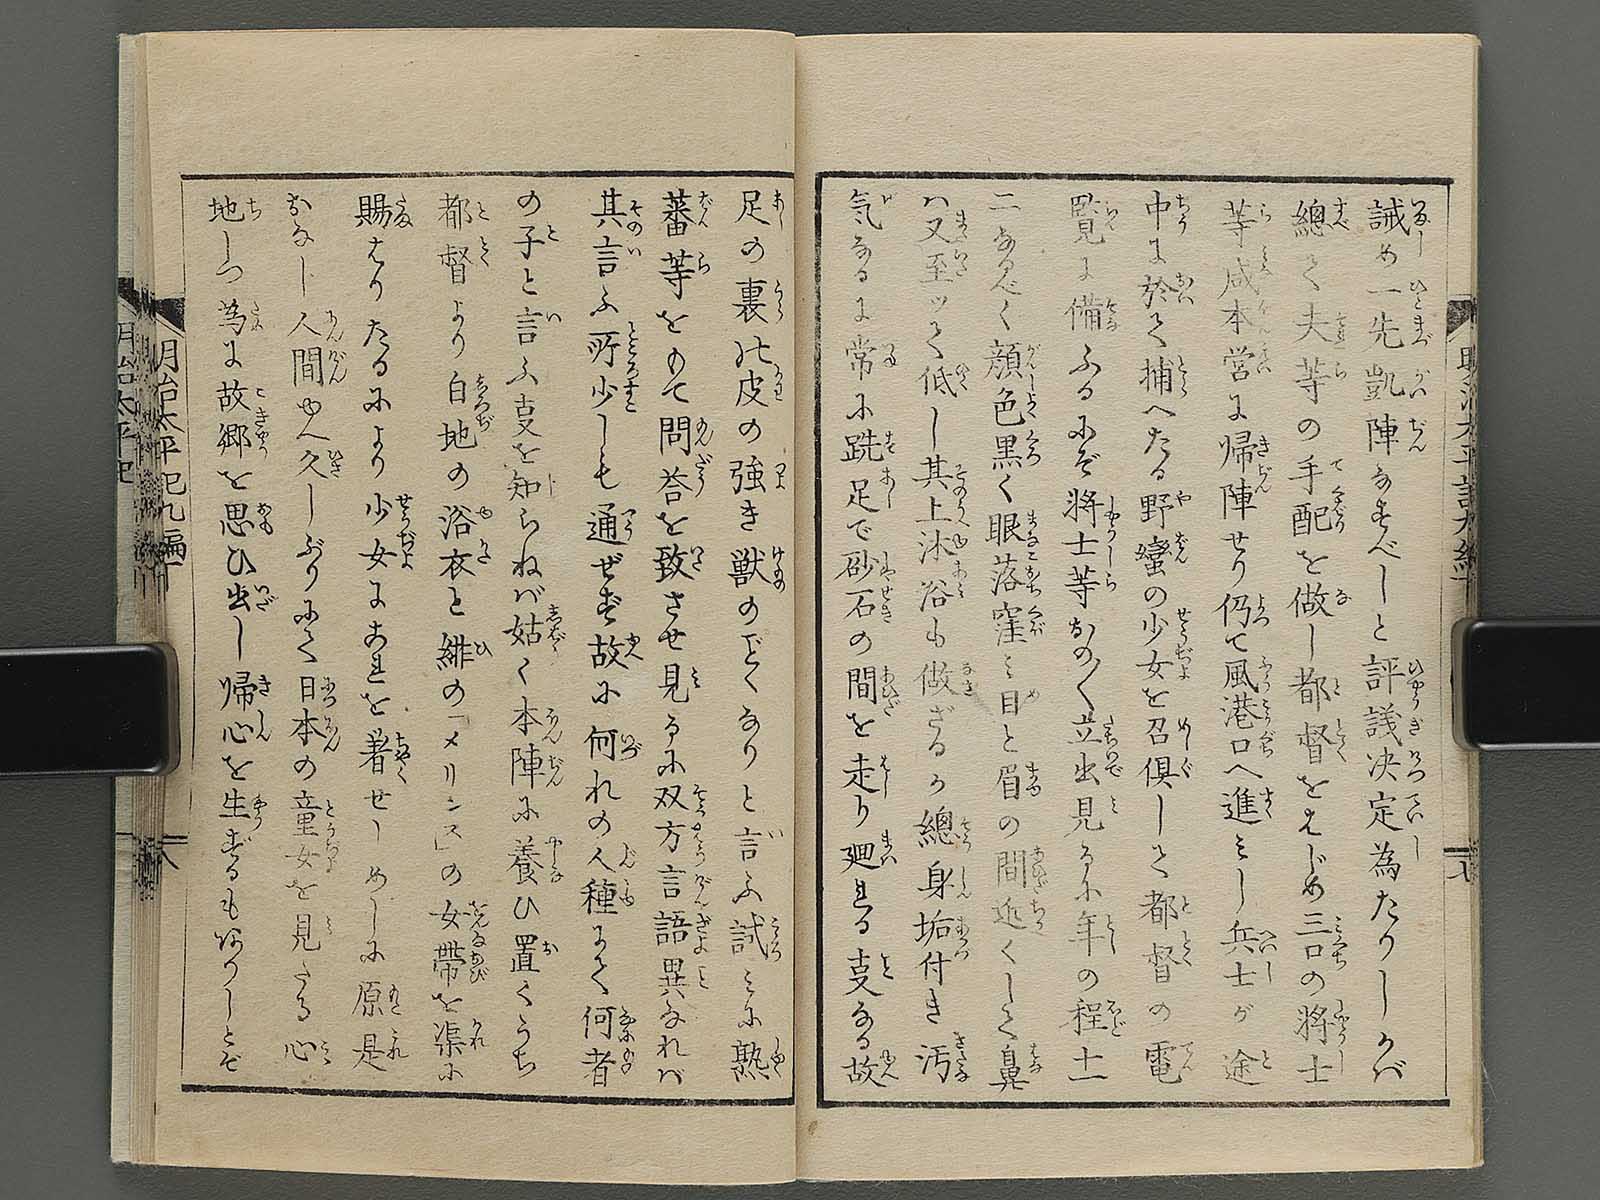 誡め一先凱陣なすべしと評議決定為たりしかば
總て夫等の手配を做し都督をはじめ三口の将士
等咸本営に帰陣せり仍て風港口へ進みし兵士が途
中に於て捕へたる野蠻の少女を召倶しと都督の電
覧に備ふるにぞ将士等おの〱立出見るに年の程十一
二なるべく顔色黒く眼落窪み目と眉の間近くして鼻
ハ又至ツて低し其上沐浴も做ざるか總身垢付き汚
気なるに常に跣足で砂石の間を走り廻れる叓なる故
足の裏は皮の強き獣のごとくなりと言ふ試みに熟
蕃等をもて問荅を致させ見るに双方言語異なれバ
其言ふ所少しも通ぜず故に何れの人種にて何者
の子と言ふ叓を知らねば姑く本陣に養ひ置くうち
都督より白地の浴衣と緋の「メリンス」の女帶を渠に
賜はりたるにより少女にこれを著せしめしに原是
おなじ人間ゆへ久しぶりにて日本の童女を見たる心
地しつ為に故郷を思ひ出し帰心を生ずるもありしとぞ
明治太平記九編
八
明治太平記
明治太平記九編
七